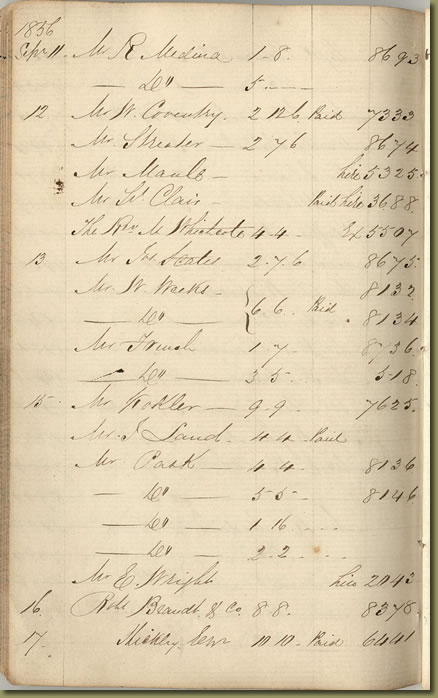 1856
Sepr 11. Mr R Medina 1-8. 8693
— Do — 5 —
12 Mr W. Coventry. 2 12 6 Paid 7333
Mr. Streater — 2 7 6 8674
Mr Maule — hire 5325
Mr St Clair — Paid hire 3688
The Rev M Whichcote 4-4 — Ex 5507
13. Mr Jas Scates 2.7.6 8675
Mr. W. 8132
— Do — 6.6. Paid 8134
Mr French 1.7. 8736
— Do — 3.5. 518.
15. Mr — 9-9. 7625.
Mr. J Land. 4 4. Paid
Mr Cask — 4 4. 8136
— Do — 5 5 — 8146
— Do — 1 16
— Do — 2.2
Mr E. Wright hire 2043
16. Robt Brandt & Co. 8.8. 8378.
17. 10 10 Paid 6441